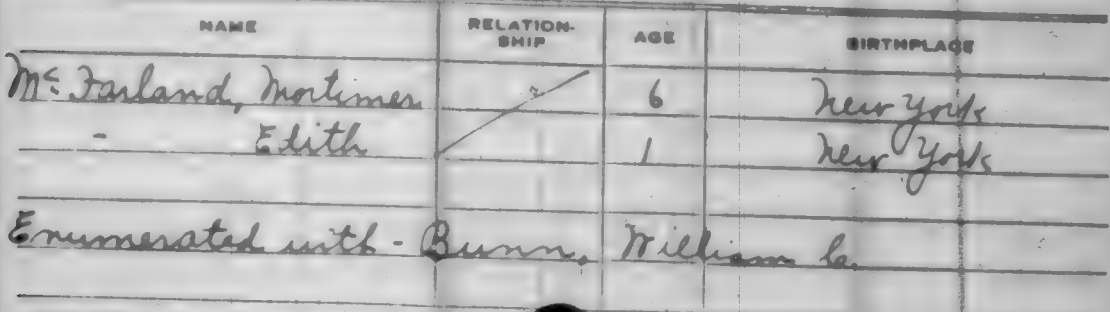 NAME RELATION-SHIP AGE BIRTHPLACE
Mc Farland, Mortimer 6 New York
- Edith 1 New York
Enumerated with - Bunn, William C.